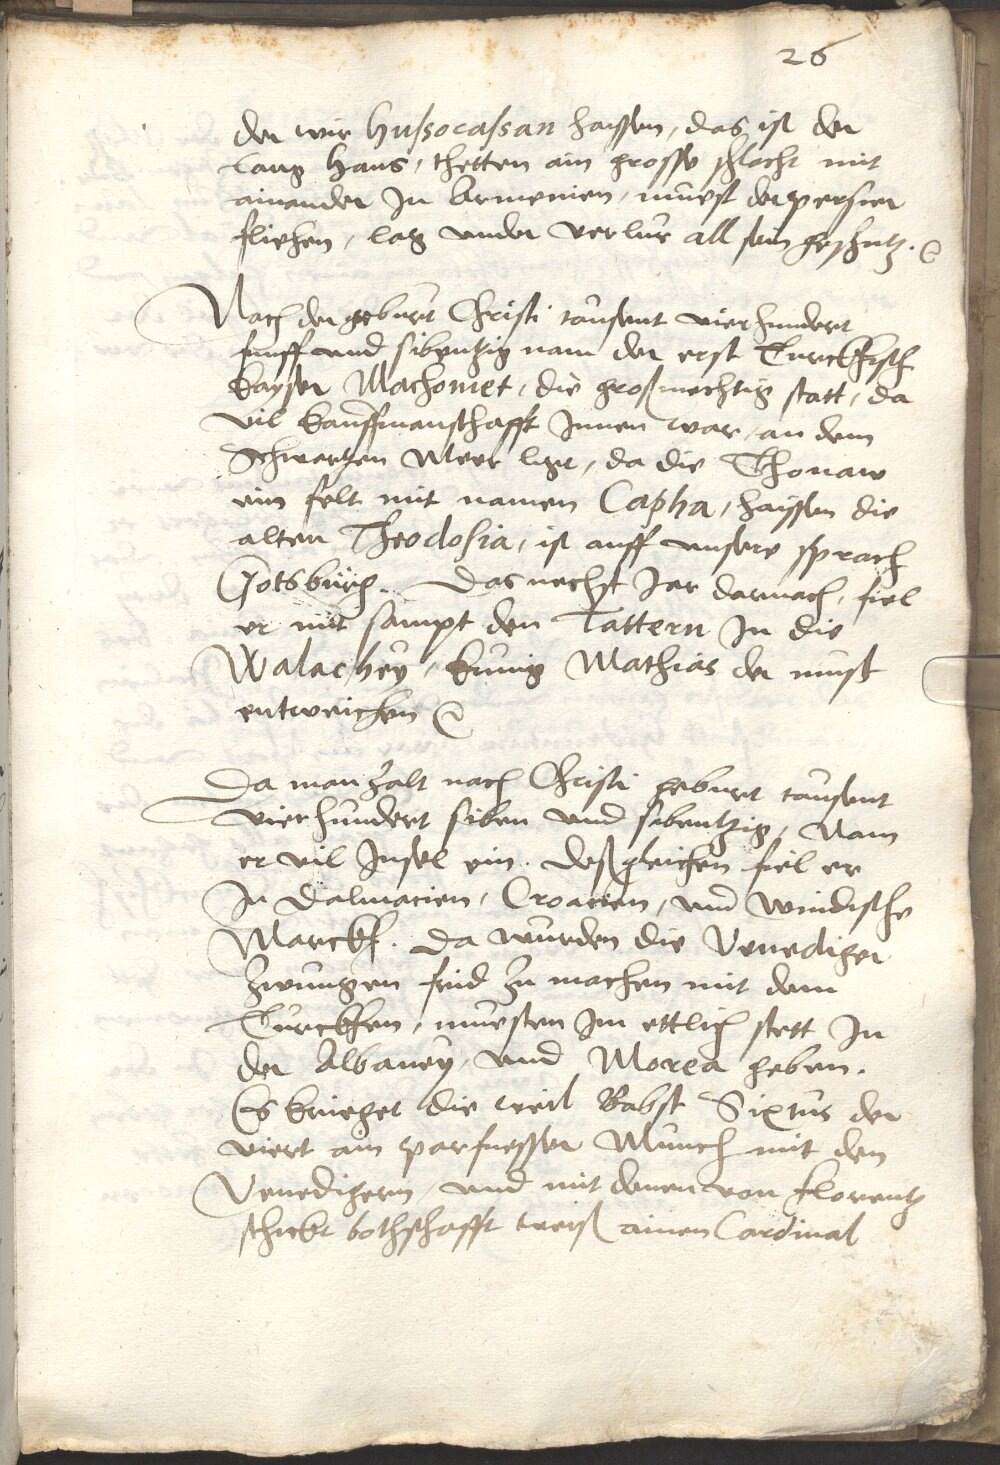 26
der wir Hussocassan haissen, das ist der
lang Hans, thetten ain grosse schlacht mit
ainander In Armenien, muest der persier
fliehen, lag under verlur all sein geschutz.
Nach der geburt Christi tausent vierhundert
funff und sibentzig nam der erst Turckhisch
kayser Machomet, die großmechtig statt, da
vil kauffmanschafft Innen war, an dem
Schwartzen Meer ligt, da die Thonaw
ein felt mit namen Capha, haissen die
alten Theodosia, ist auff unsere sprach
Gotsburg. Das nechst Jar darnach, fiel
er mit sampt den Tattern In die
Walachey, kunig Mathias der must
entweichen
Da man zalt nach Christi geburt tausent
vierhundert siben und sibentzig, Nam
er vil Insel ein. Desgleichen fiel er
In Dalmacien, Croacien, und windische
Marckh. Da wurden die Venediger
zwungen frid zu machen mit dem
Turckhen, muesten Im ettlich stett In
der Albaney, und Morea geben.
Es krieget die weil Babst Sixtus der
viert ain parfuesser Munch mit den
Venedigern, und mit denen von florentz
schickt bothschafft weiß ainen Cardinal